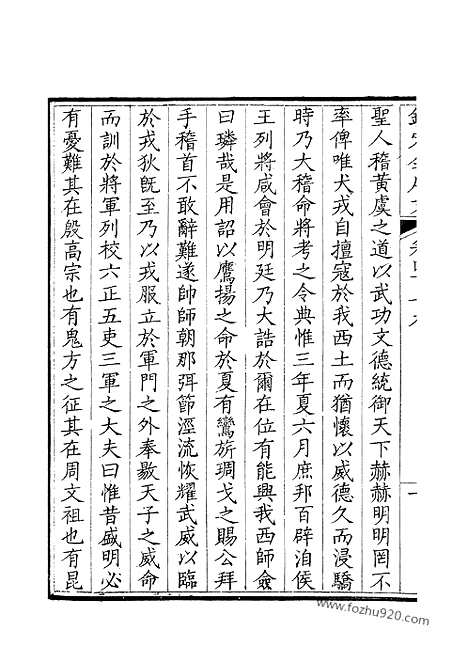 聖人稽黄虞之道以武功文德統御天下赫赫明明罔不
率俾唯犬戎自擅寇於我西土而猶懷以威德久而浸驕
時乃大稽命將考之令典惟三年夏六月庶邦百辟洎侯
王列將咸會於明廷乃大誥於爾在位有能興我西師僉
曰璘哉是用詔以鷹揚之命於夏有鸞旂琱戈之賜公拜
手稽首不敢辭難遂帥師朝那弭節涇流恢耀武威以臨
於戎狄既至乃以戎服立於軍門之外奉敭天子之威命
而訓於將軍列校六正五吏三軍之大夫曰惟昔盛明必
有憂難其在殷高宗也有鬼方之征其在周文祖也有昆
www.fozhu920.com